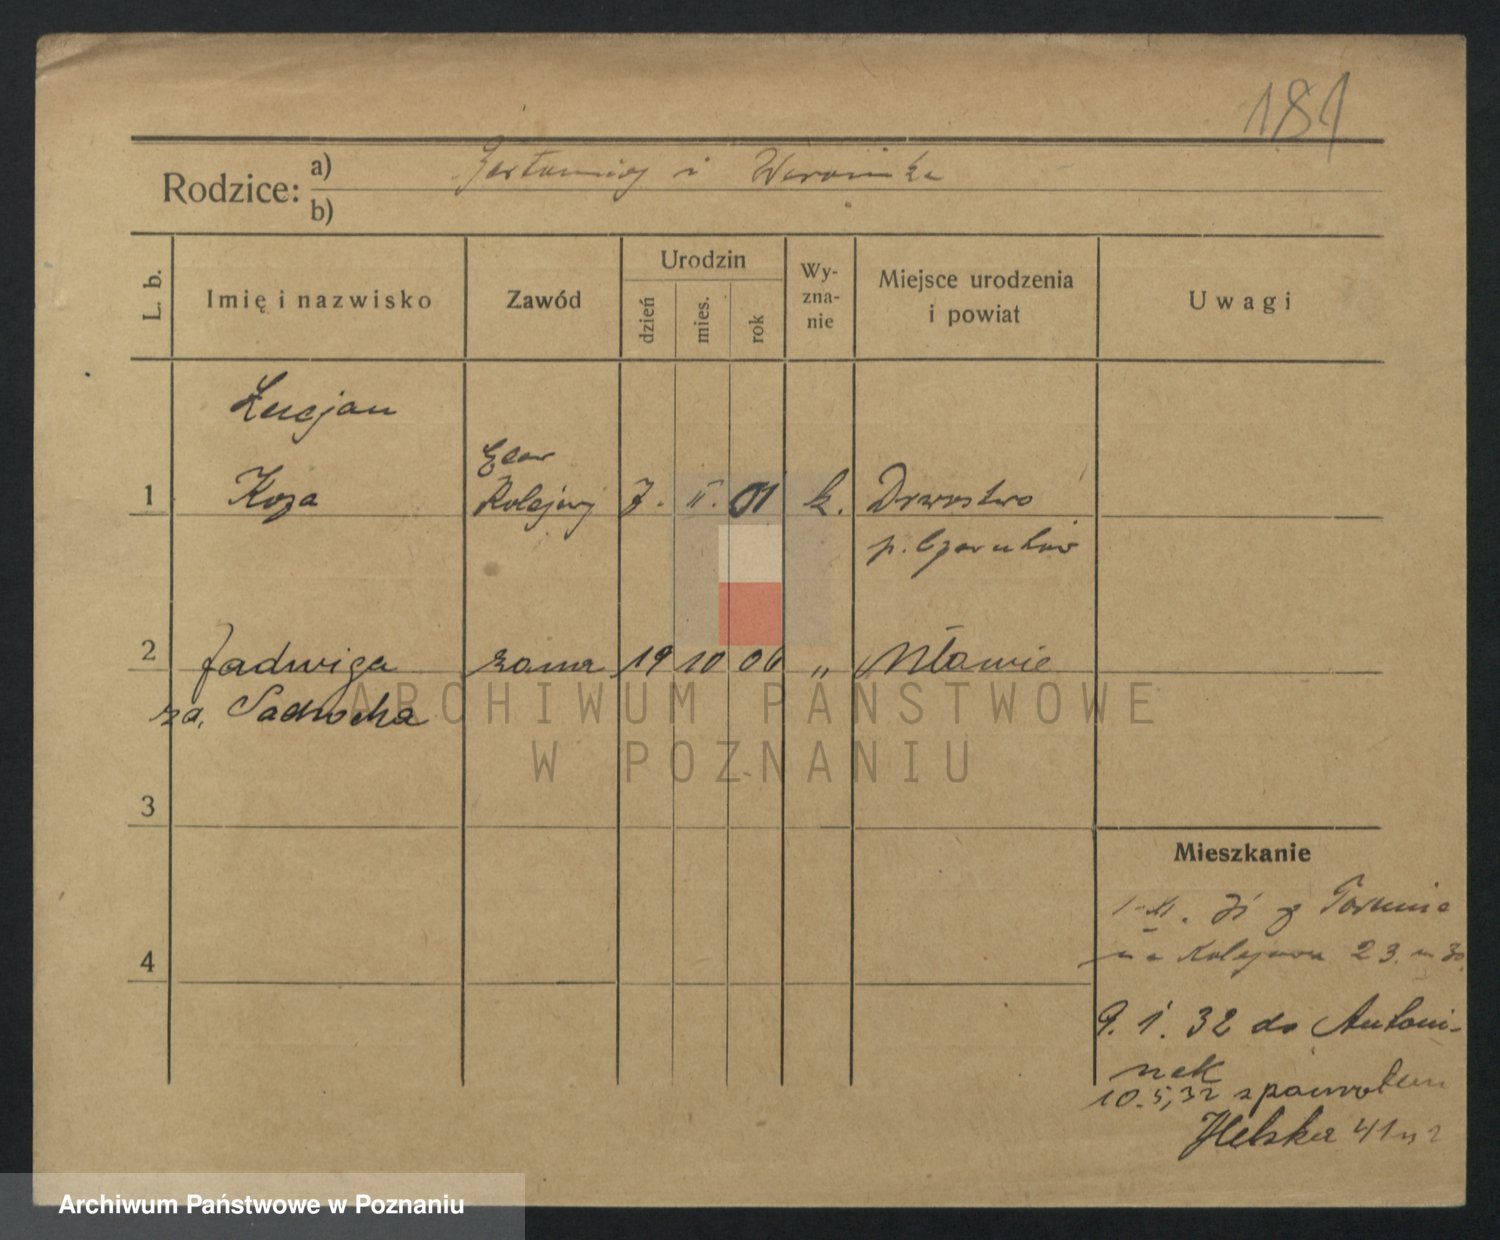 181
Rodzice:
a) Bartłomiej i Weronika
b)
L. b.
Imię i nazwisko
Zawód
Urodzin
dzień
mies.
rok
Wy-
zna-
nie
Miejsce urodzenia
i powiat
Uwagi
Łucjan
1 Koza
Kolejowy 7. II. 01 k.
p. Czarnków
2 Jadwiga
żona 19 10 06 „ Mławie
za. Sadrocha
3
4
Mieszkanie
Torunie
na Kolejowa 23. m 30.
9. 1. 32 do Antoni-
nek
10.5,32 spowrotem
Helska 41 m 2
ARCHIWUM PAŃSTWOWE
W POZNANIU
Archiwum Państwowe w Poznaniu